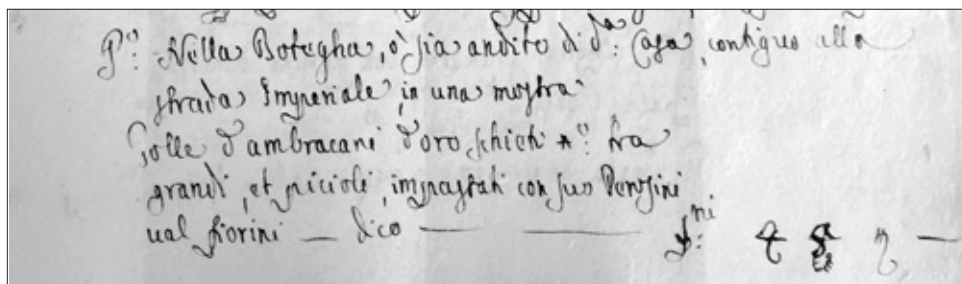 P.o Nella Botegha, o' sia andito di d.a Casa, contiguo alla
strada Imperiale, in una mostra
Colle d'ambracani d'oro schieti n.o tra
grandi, et picioli, impastati con suo
ual fiorini — dico — — f.ni